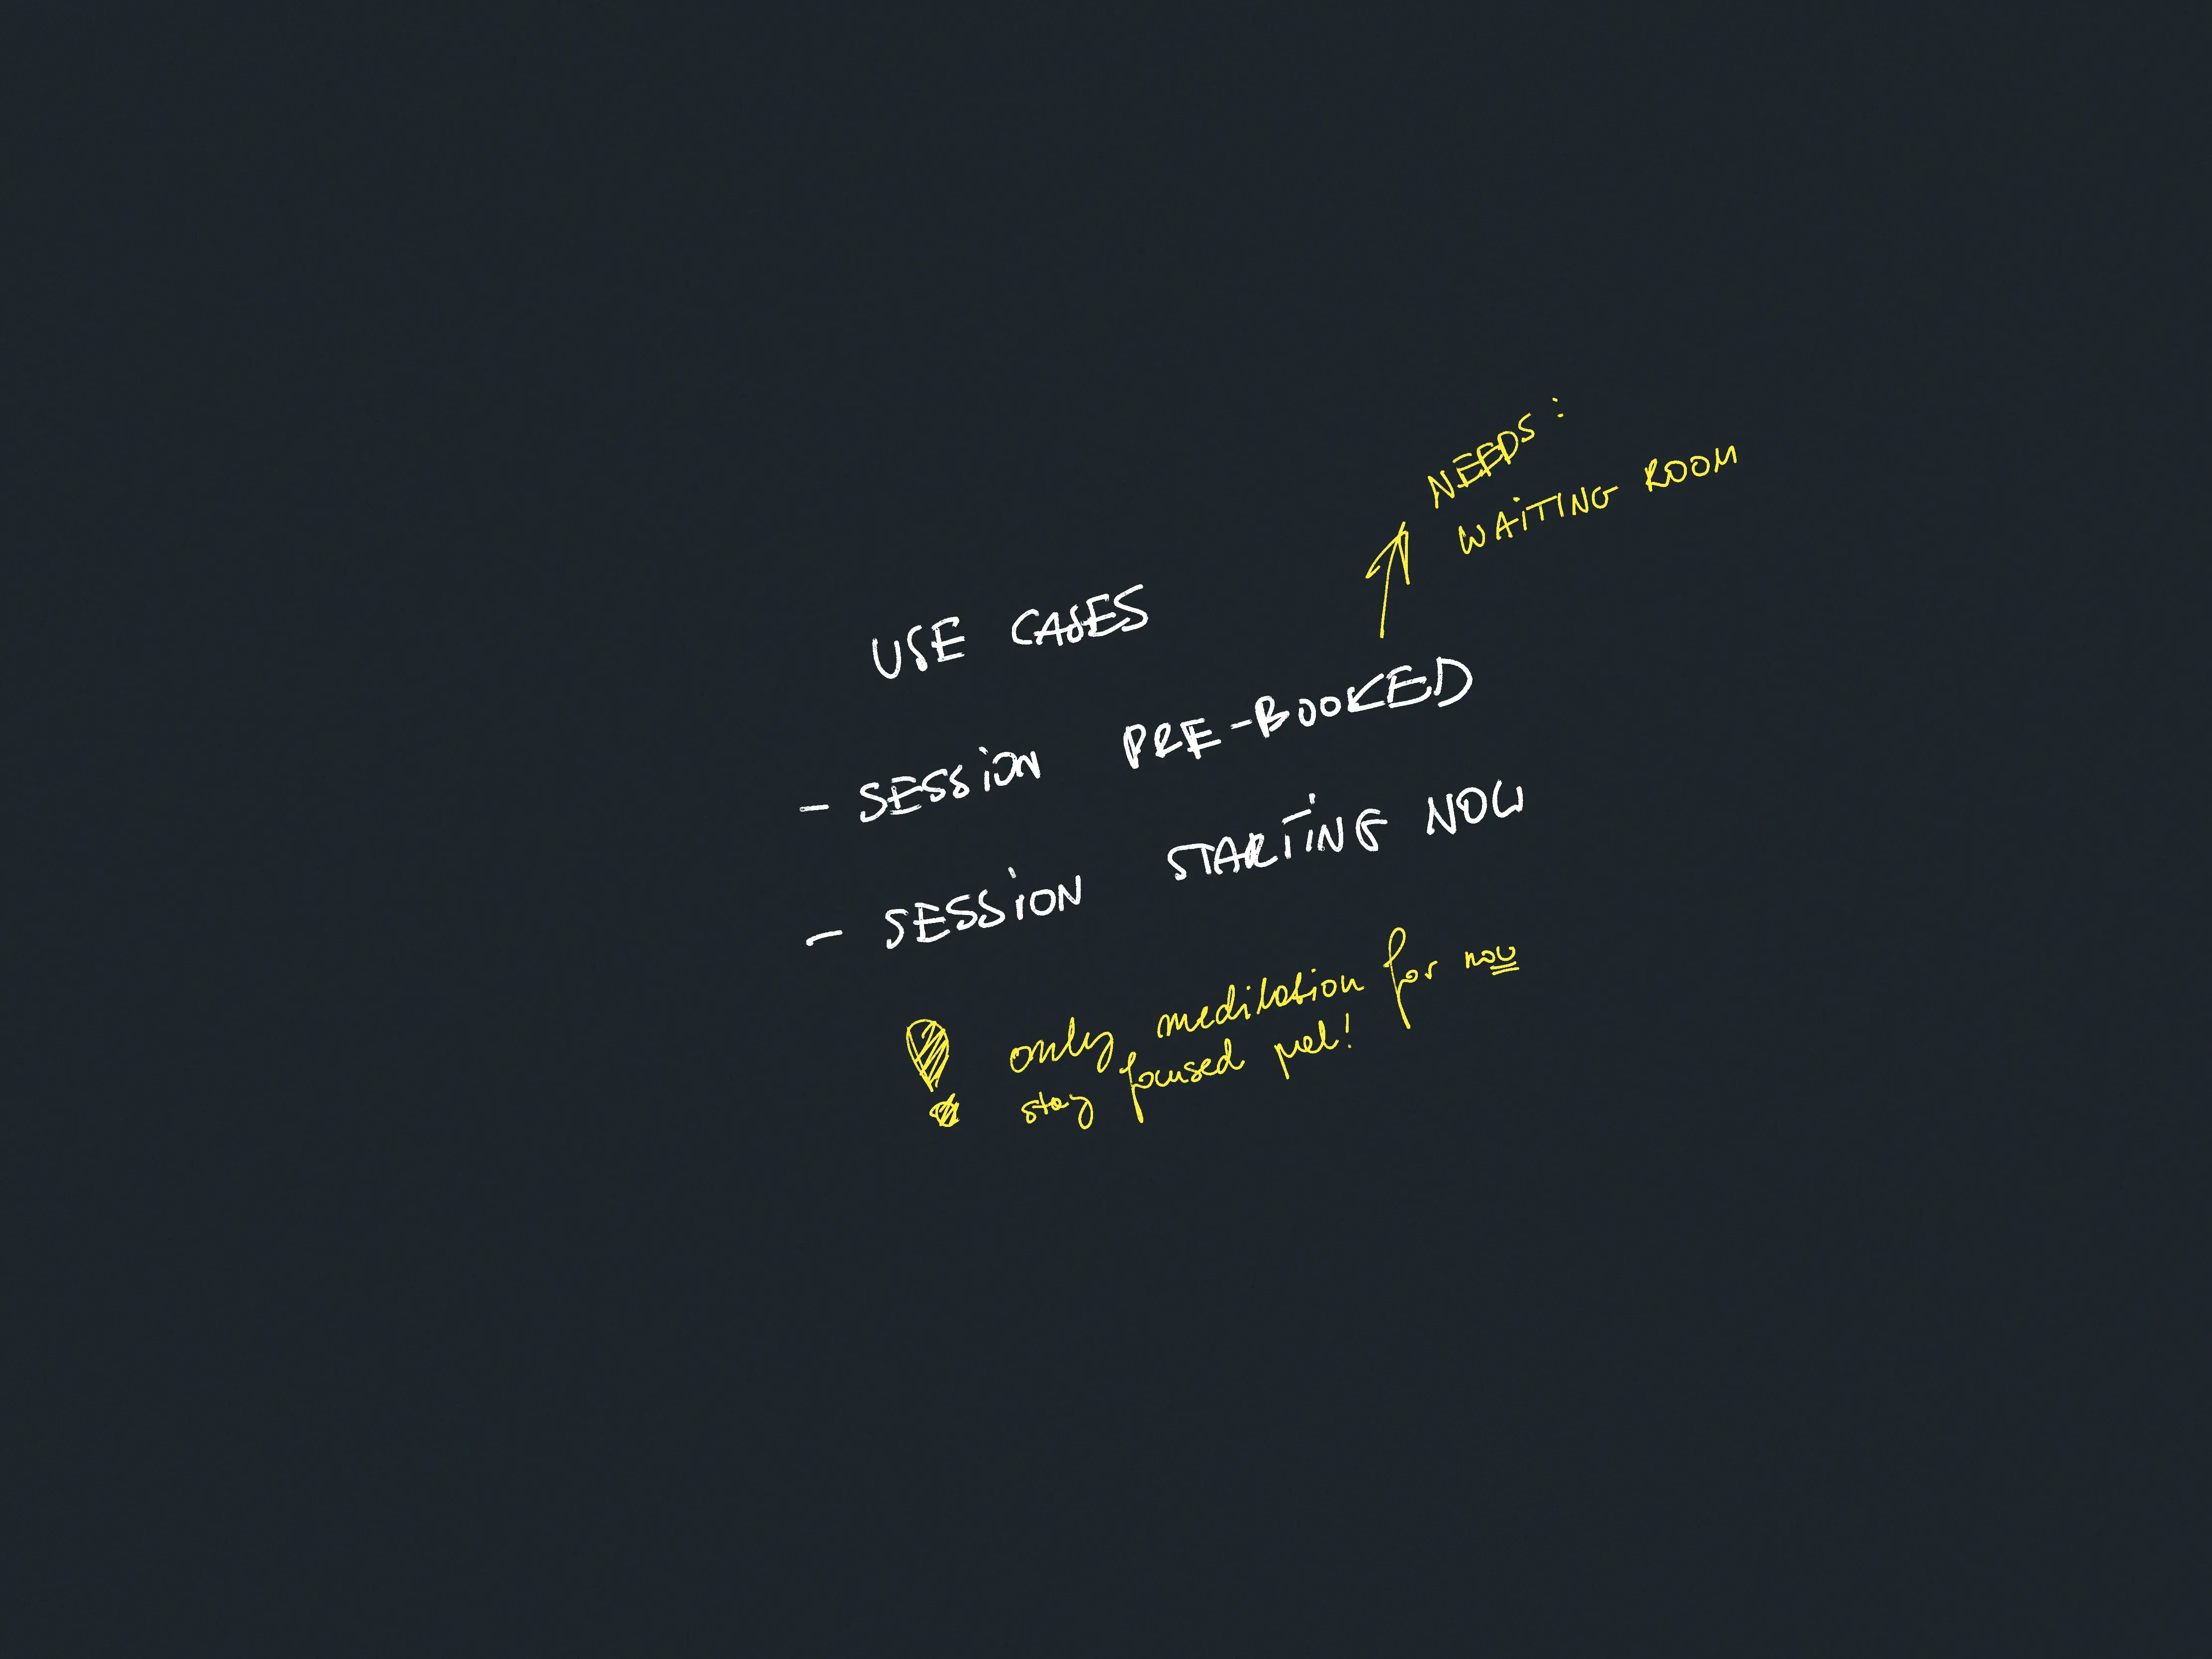 NEEDS:
WAITING ROOM
USE CASES
- SESSION PRE-BOOKED
- SESSION STARTING NOW
only meditation for now
stay focused